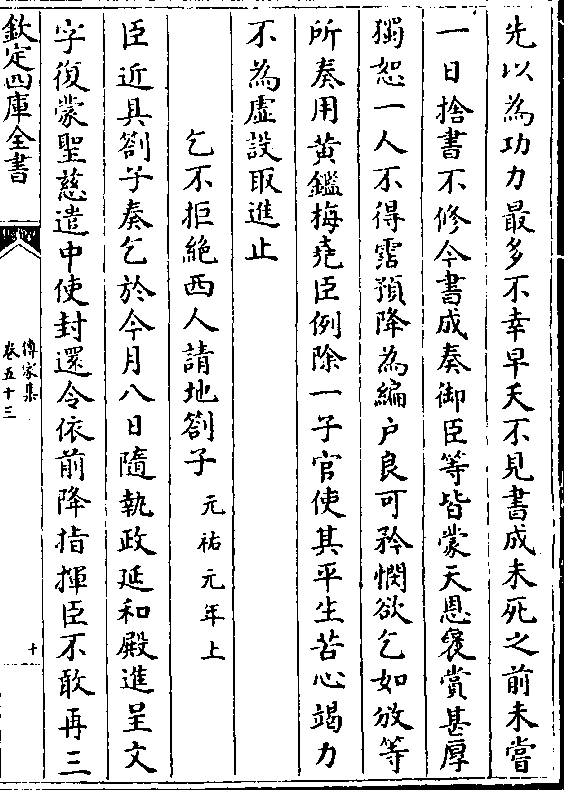 先以為功力最多不幸早夭不見書成未死之前未嘗
一日捨書不修今書成奏御臣等皆蒙天恩褒賞甚厚
獨恕一人不得霑預降為編户良可矜憫欲乞如攽等
所奏用黄鑑梅堯臣例除一子官使其平生苦心竭力
不為虚設取進止
乞不拒絶西人請地劄子 元祐元年上
臣近具劄子奏乞於今月八日隨執政延和殿進呈文
字復蒙聖慈遣中使封還令依前降指揮臣不敢再三
欽定四庫全書
傳家集
卷五十三
十